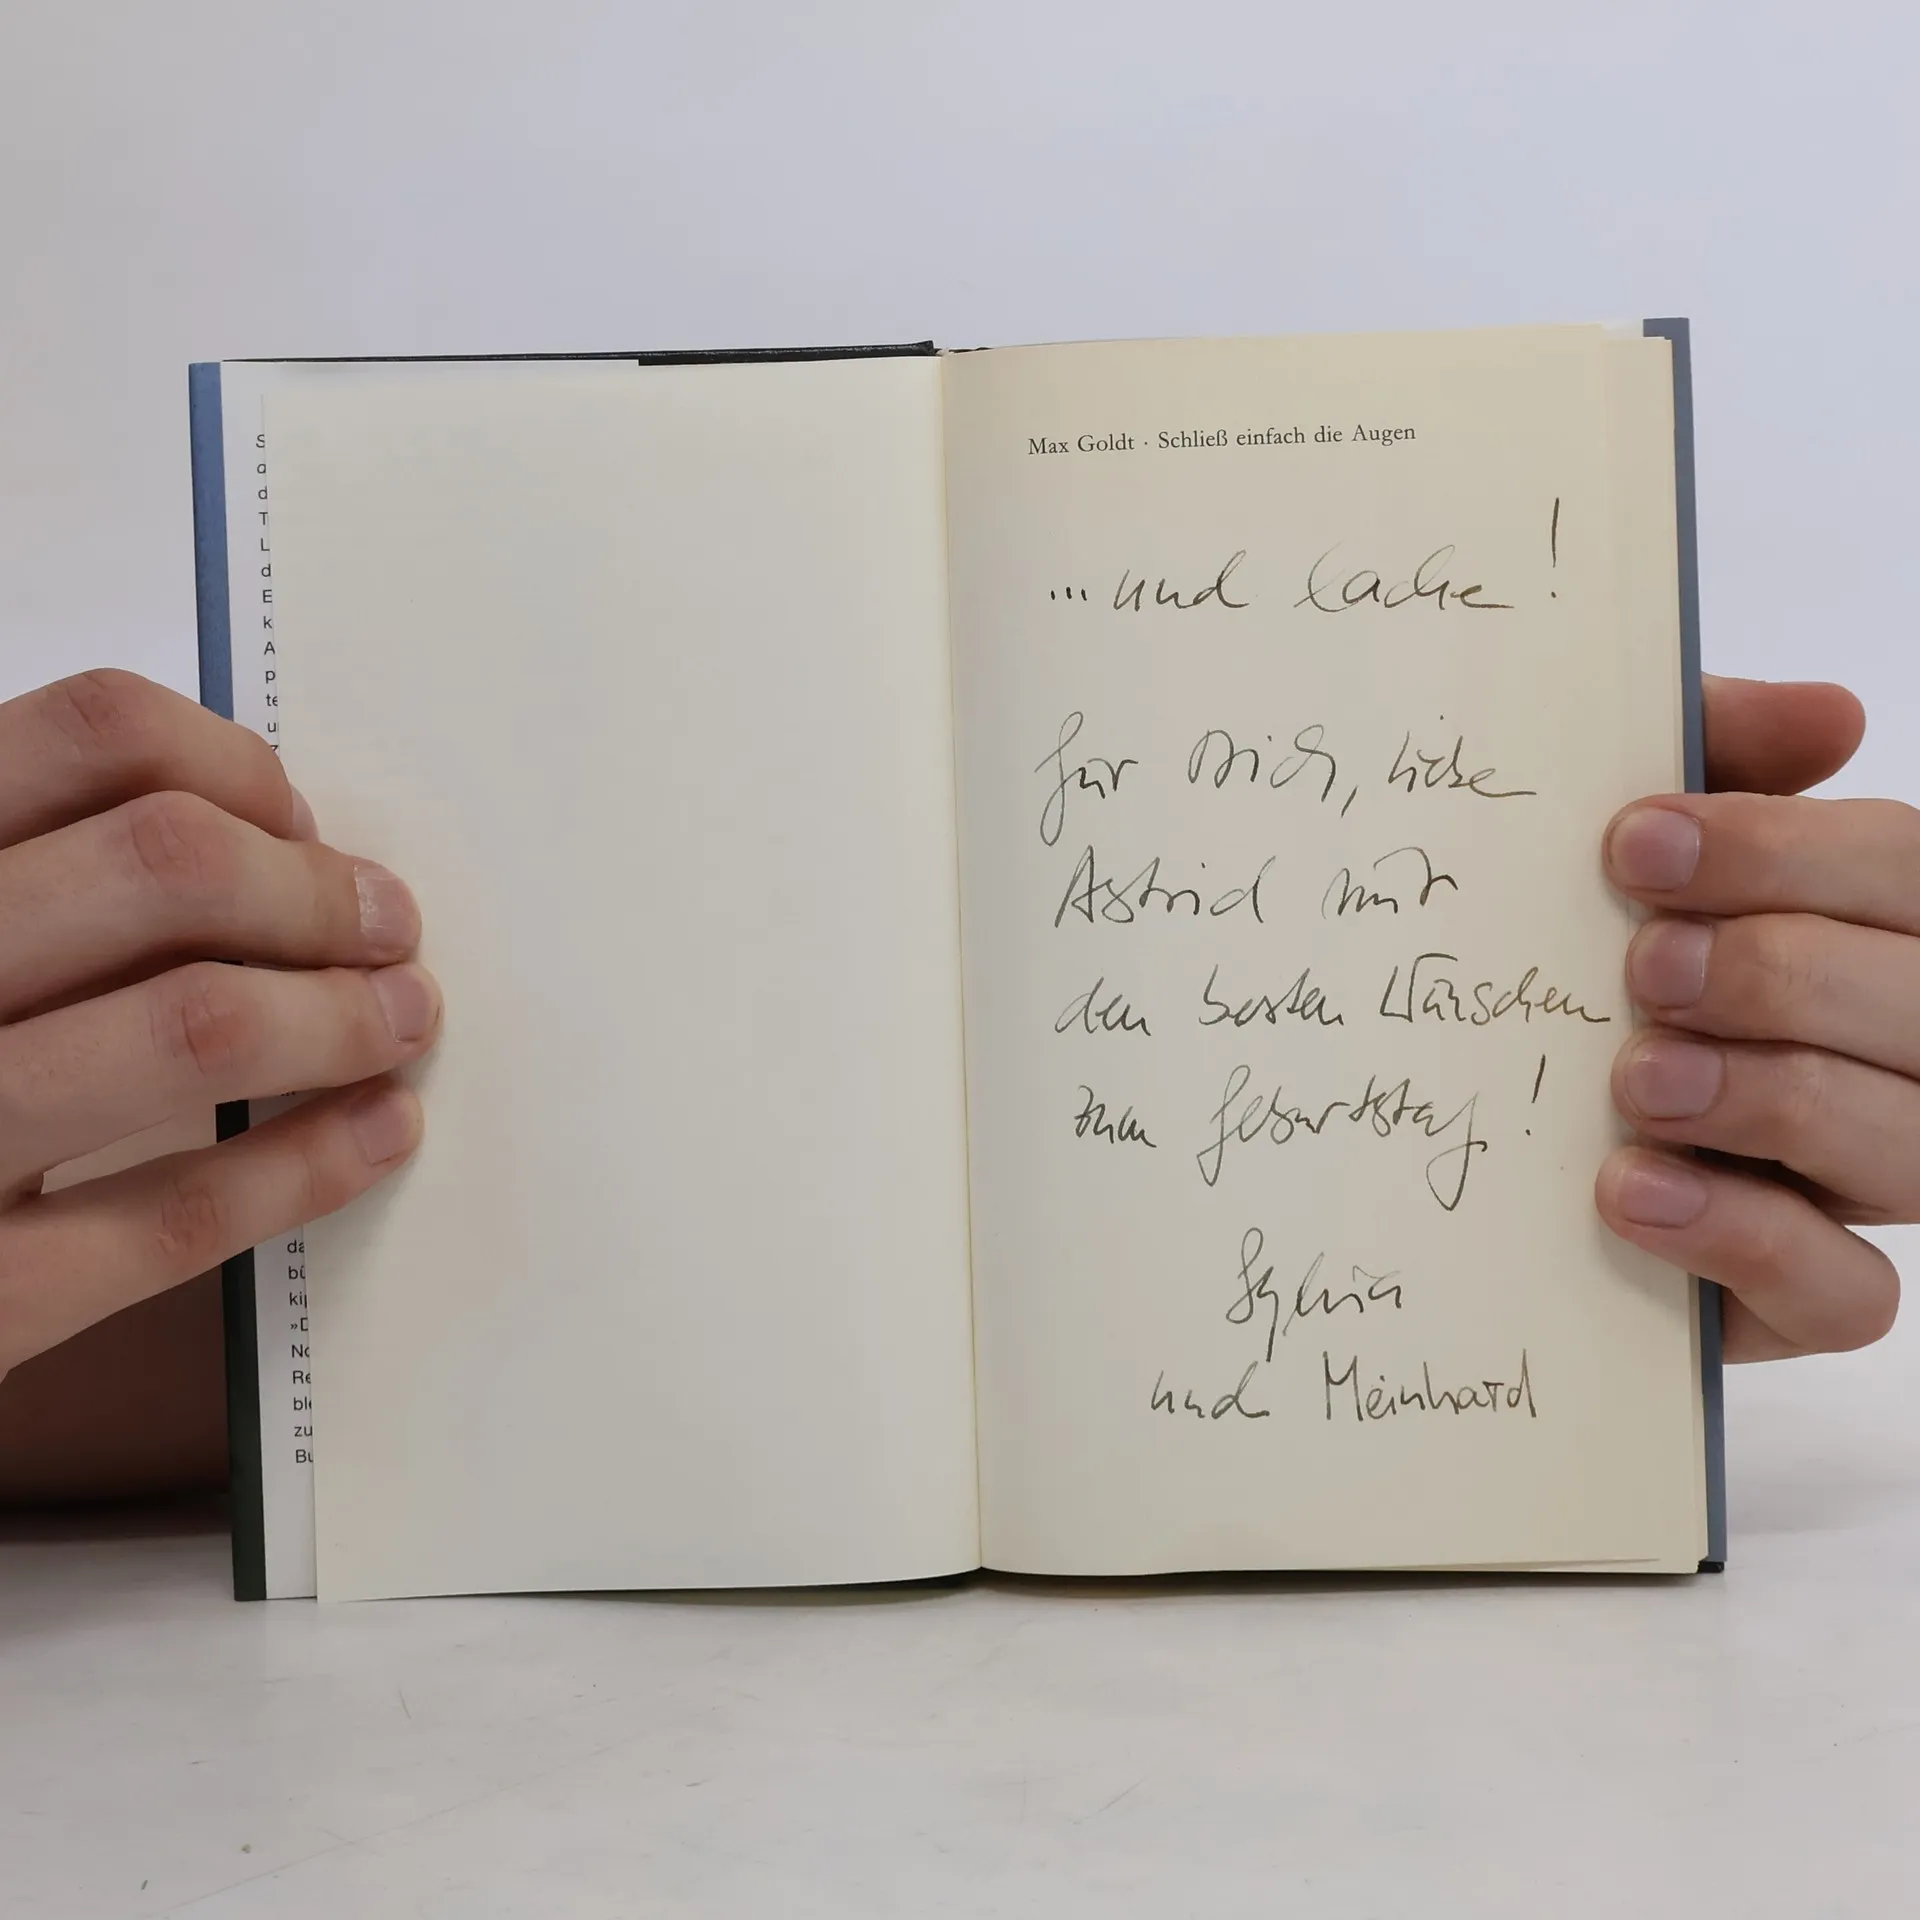 S
a
d
T
L
d
E
k
A
p
te
u
da
bü
kip
»D
No
Re
ble
zu
Bu
Max Goldt · Schließ einfach die Augen
... und lache!
für Dich, liebe
Astrid mit
den besten Wünschen
zum Geburtstag!
Sylvia
und Meinhard